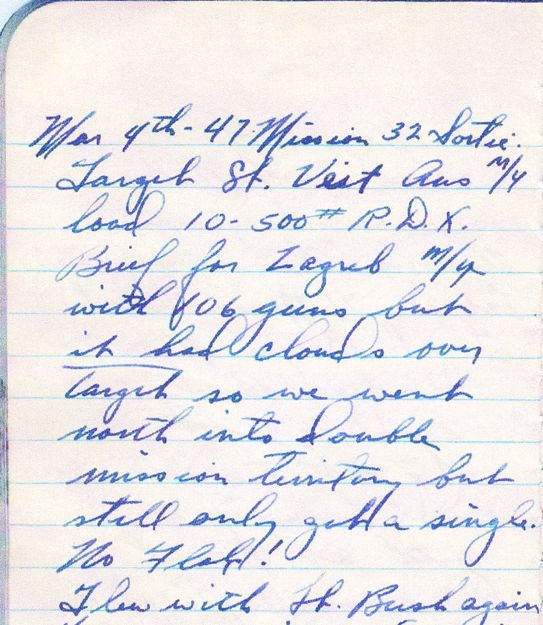 Mar 4th - 47 Mission 32 Sortie.
Target St. Veit Aus M/Y
load 10-500# R.D.X.
Brief for Zagreb M/Y
with 106 guns but
it had clouds over
target so we went
north into double
mission territory but
still only got a single.
No Flak!
Flew with Lt. Bush again